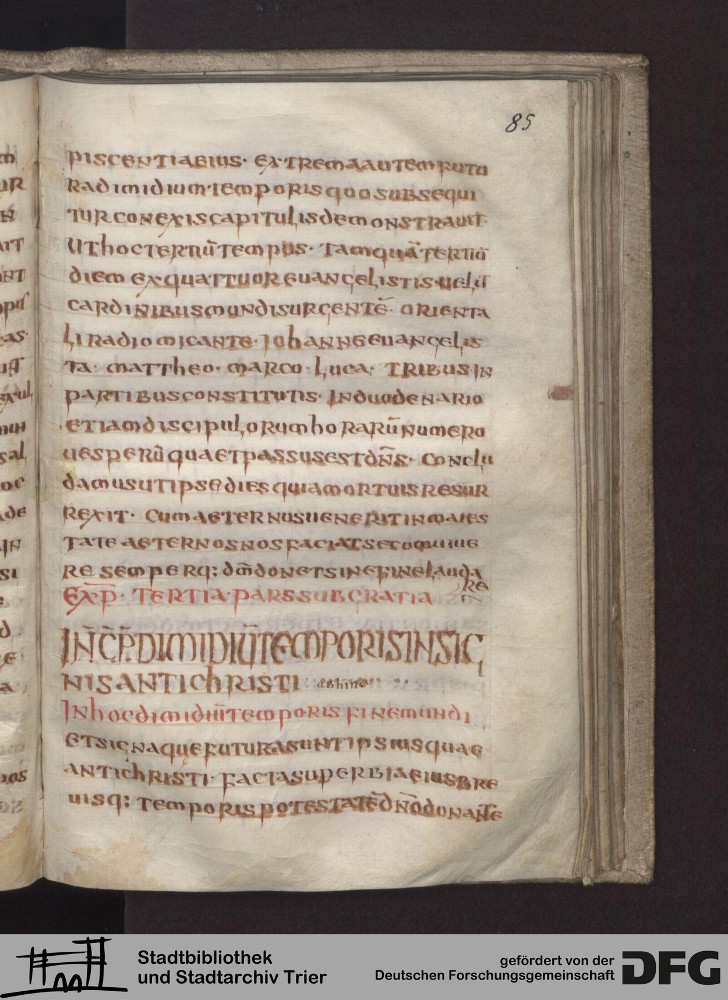 85
piscentiabius · extrema autem futu
ra dimidium temporis quo subsequi
tur conexis capitulis demonstrauit ·
ut hoc tertiū tempus · tamquā tertiū
diem ex quattuor euangelistis uelut
cardinibus mundi surgentē · orienta
li radio micante · iohanne euangelis
ta · mattheo · marco · luca · tribus in
partibus constitutis · in duodenario
etiam discipulorum horarū numero
uesperū qua et passus est dn̄s · conclu
damus ut ipse dies quia mortuis resur
rexit · cum aeternus uenerit in maies
tate aeternos nos faciat secumuiue
re semperq; dm̄ donet sine fine lauda
re
Exp̄ · tertia · pars sub gratia
IN̄CP̄ DIMIDIŪ TEMPORIS IN SIG
NIS ANTIChRISTI
In hoc dimidiū temporis finem undi
et signa que futura sunt ipsiusquae
antichristi · facta superbiae eius bre
uisq; temporis potestatē dn̄o donante
Stadtbibliothek
und Stadtarchiv Trier
gefördert von der
Deutschen Forschungsgemeinschaft
DFG